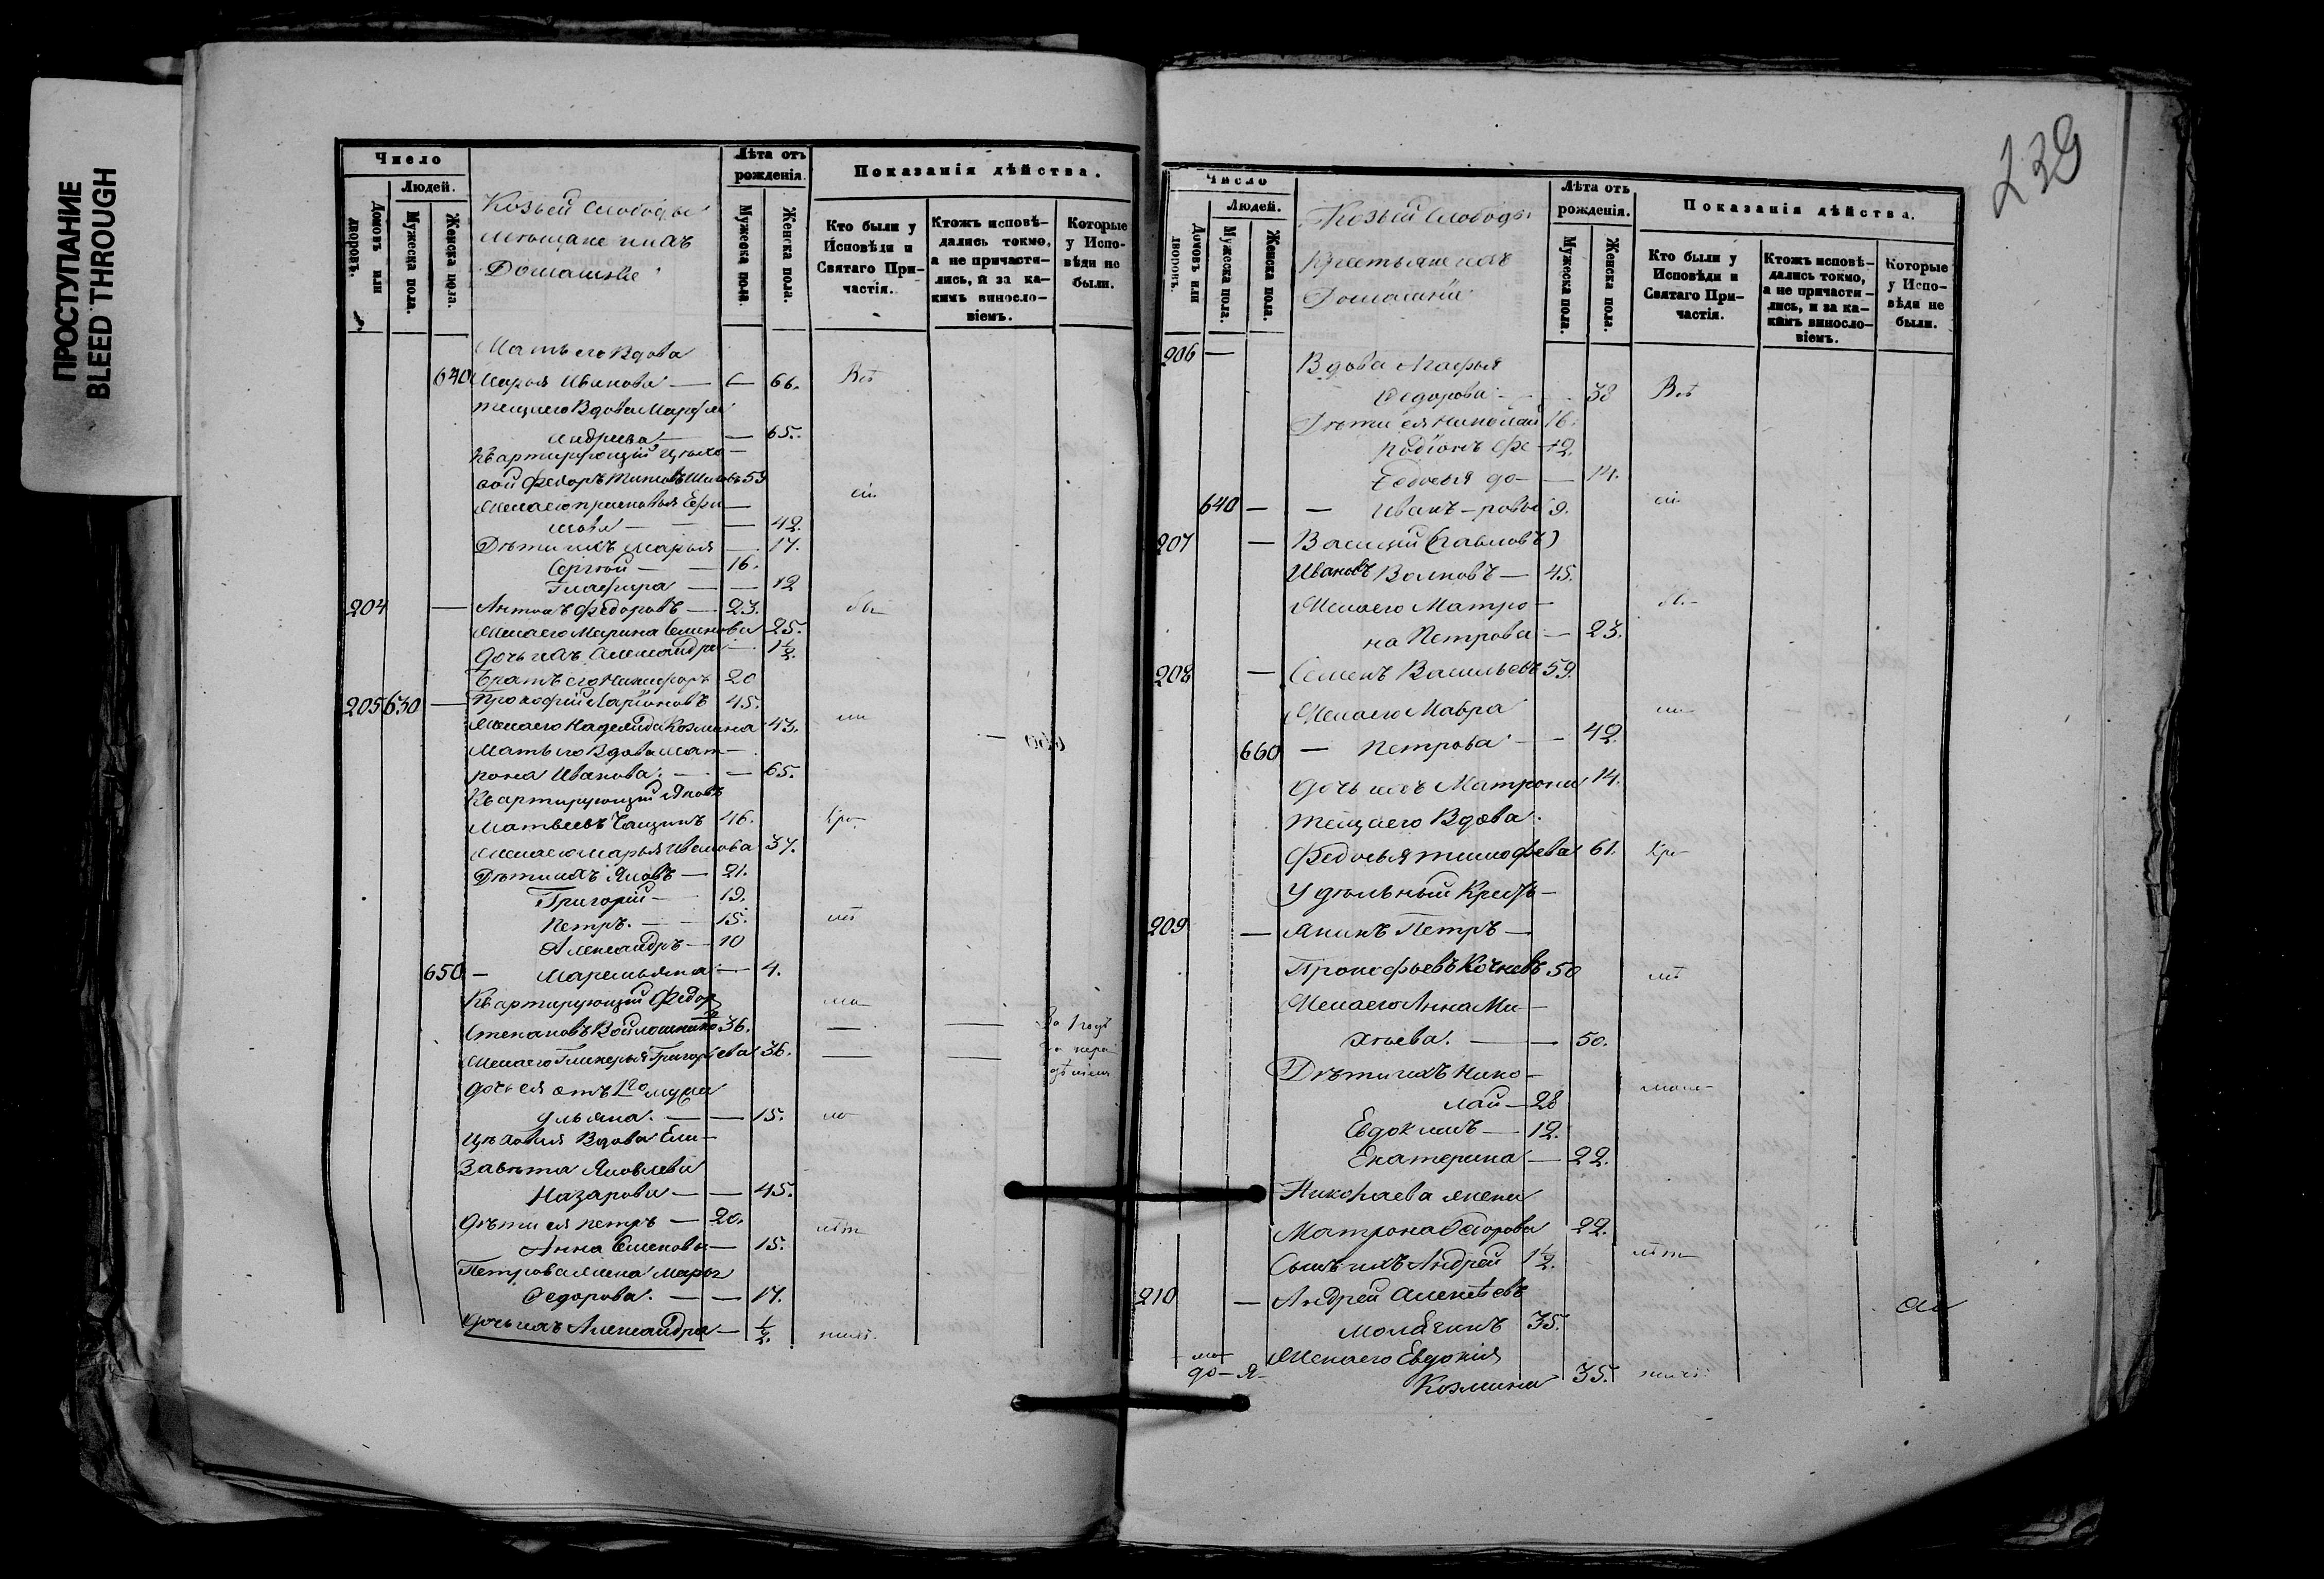 ПРОСТУПАНИЕ
BLEED THROUGH
Число
Людей.
Домовъ или дворовъ.
Мужеска пола.
Женска пола.
Козьей слободы
мѣщане и ихъ
Домашніе
Лѣта отъ рожденія.
Мужеска пола.
Женска пола.
Показанія дѣйства.
Кто были у Исповѣди и Святаго Причастія.
Ктожъ исповѣдались токмо, а не причастились, и за какимъ винословіемъ.
Которые у Исповѣди не были.
Мать его Вдова
640 Марья Иванова — — 66.
теща его Вдова Марфа
Андреева — — 65.
Квартирующій цехо-
вой Федоръ Титовъ 53
Жена его
мова — — 42.
Дѣти ихъ Марья — 17.
Сергѣй — — 16.
Глафира — — 12
204 — Антонъ Федоровъ — 23.
Жена его Марина Семенова 25.
Дочь ихъ Александра — 1½.
Братъ его Никифоръ 20
205 630 — Прокофій Ларіоновъ 45.
Жена его Надежда Козмина 43.
Мать его Вдова Мат-
рона Иванова. — — 65.
Квартирующій Яковъ
Матвеевъ 46.
Жена его Марья Иванова 37.
Дѣти ихъ Яковъ — 21.
Григорій — 19.
Петръ. — — 15.
Александръ — 10
650 — Маремьяна — 4.
Квартирующій Федоръ
Степановъ Войлошников 36. — —
Жена его Гликерья Григорьева 36. — —
За 1 годъ
по нера
дѣнію
Дочь ея отъ 1го мужа
Ульяна. — — 15.
Цеховая Вдова Ели-
завета Яковлева
Назарова — — 45.
Дѣти ея Петръ — 20.
Анна Семеновы — 15.
Петрова жена Марья
Федорова. — — 17.
Дочь ихъ Александра — ½.
239
Число
Людей.
Домовъ или дворовъ.
Мужеска пола.
Женска пола.
Козьей слободы
Крестьяне и ихъ
Домашніе
Лѣта отъ рожденія.
Мужеска пола.
Женска пола.
Показанія дѣйства.
Кто были у Исповѣди и Святаго Причастія.
Ктожъ исповѣдались токмо, а не причастились, и за какимъ винословіемъ.
Которые у Исповѣди не были.
206 — Вдова Агафья
Федорова — 38
Дѣти ея Николай 16.
Родіонъ Фе- 12.
Федосья до- — 14.
640 — — Иванъ -ровы 9.
207 — Василій (Павловъ)
Ивановъ Волковъ — 45.
Жена его Матро-
на Петрова — 23.
208 — Семенъ Васильевъ 59.
Жена его Мавра
660 — Петрова — — 42.
Дочь ихъ Матрона 14.
теща его Вдова
Федосья тимофева 61.
Удѣльный Кресть-
209 — янинъ Петръ —
Прокофьевъ Кочневъ 50
Жена его Анна Ми-
хѣева. — — 50.
Дѣти ихъ Нико-
лай — 28
Евдокимъ — 12.
Екатерина — 22.
Николаева жена
Матрона Федорова 22.
Сынъ ихъ Андрей 1½.
210 — Андрей Алексѣевъ
35.
Жена его Евдокія
Козмина 35.